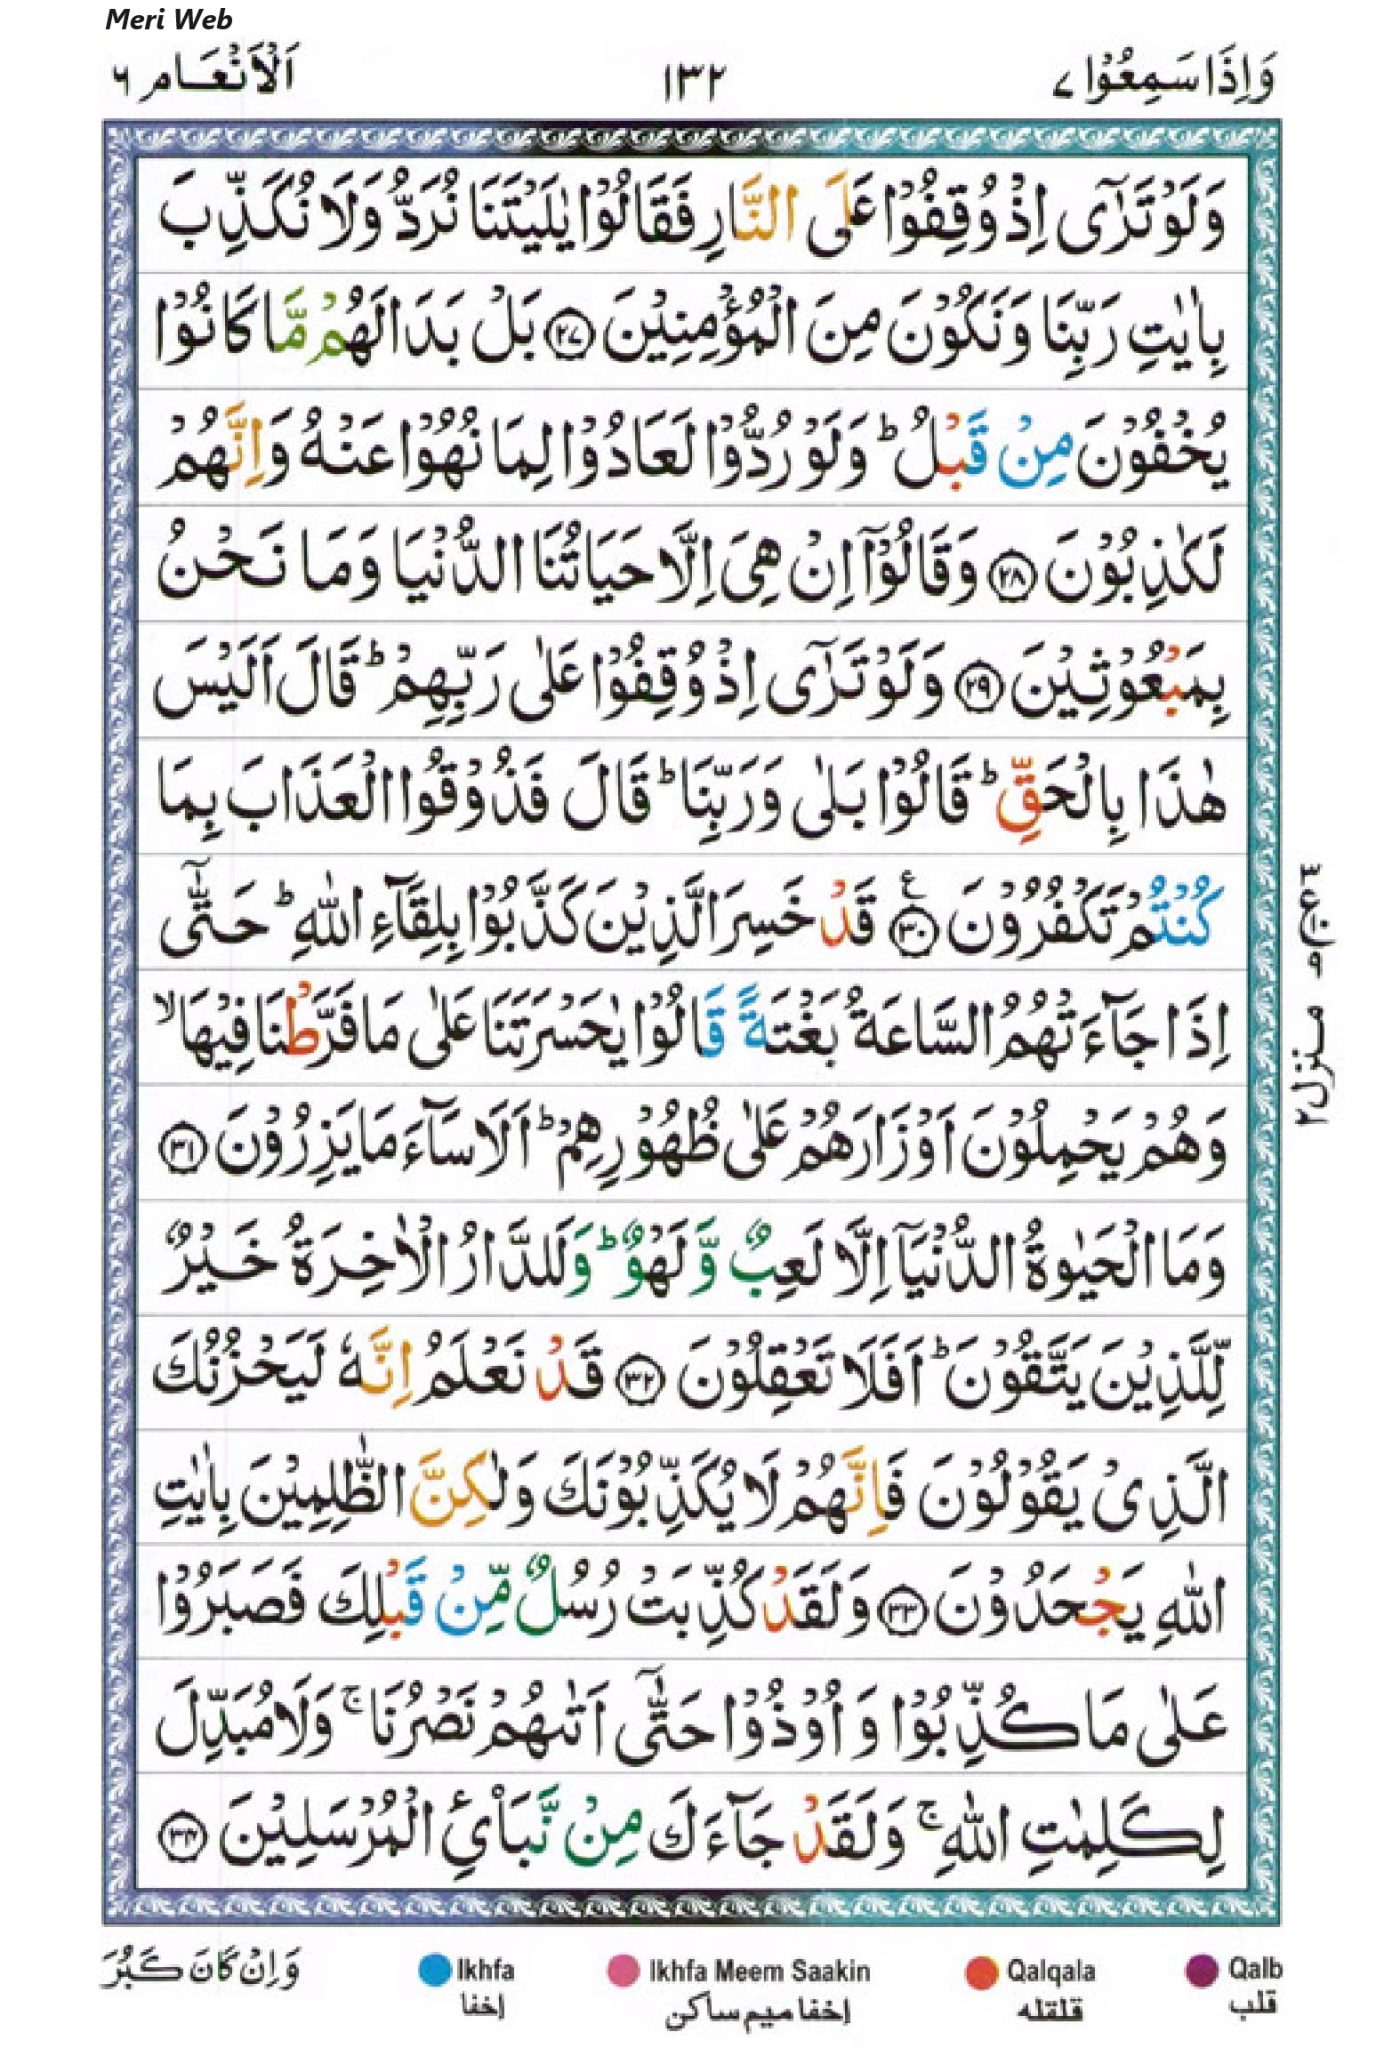 Meri Web
وَاِذَا سَمِعُوْا ٧ ١٣٢ اَلْاَنْعَام ٦
وَلَوْ تَرٰٓى اِذْ وُقِفُوْا عَلَى النَّارِ فَقَالُوْا يٰلَيْتَنَا نُرَدُّ وَلَا نُكَذِّبَ
بِاٰيٰتِ رَبِّنَا وَنَكُوْنَ مِنَ الْمُؤْمِنِيْنَ ٢٧ بَلْ بَدَا لَهُمْ مَّا كَانُوْا
يُخْفُوْنَ مِنْ قَبْلُ ؕ وَلَوْ رُدُّوْا لَعَادُوْا لِمَا نُهُوْا عَنْهُ وَاِنَّهُمْ
لَكٰذِبُوْنَ ٢٨ وَقَالُوْٓا اِنْ هِىَ اِلَّا حَيَاتُنَا الدُّنْيَا وَمَا نَحْنُ
بِمَبْعُوْثِيْنَ ٢٩ وَلَوْ تَرٰٓى اِذْ وُقِفُوْا عَلٰى رَبِّهِمْ ؕ قَالَ اَلَيْسَ
هٰذَا بِالْحَقِّ ؕ قَالُوْا بَلٰى وَرَبِّنَا ؕ قَالَ فَذُوْقُوا الْعَذَابَ بِمَا
كُنْتُمْ تَكْفُرُوْنَ ٣٠ ع قَدْ خَسِرَ الَّذِيْنَ كَذَّبُوْا بِلِقَآءِ اللّٰهِ ؕ حَتّٰٓى
اِذَا جَآءَتْهُمُ السَّاعَةُ بَغْتَةً قَالُوْا يٰحَسْرَتَنَا عَلٰى مَا فَرَّطْنَا فِيْهَا ۙ
وَهُمْ يَحْمِلُوْنَ اَوْزَارَهُمْ عَلٰى ظُهُوْرِهِمْ ؕ اَلَا سَآءَ مَا يَزِرُوْنَ ٣١
وَمَا الْحَيٰوةُ الدُّنْيَآ اِلَّا لَعِبٌ وَّلَهْوٌ ؕ وَلَلدَّارُ الْاٰخِرَةُ خَيْرٌ
لِّلَّذِيْنَ يَتَّقُوْنَ ؕ اَفَلَا تَعْقِلُوْنَ ٣٢ قَدْ نَعْلَمُ اِنَّهٗ لَيَحْزُنُكَ
الَّذِىْ يَقُوْلُوْنَ فَاِنَّهُمْ لَا يُكَذِّبُوْنَكَ وَلٰكِنَّ الظّٰلِمِيْنَ بِاٰيٰتِ
اللّٰهِ يَجْحَدُوْنَ ٣٣ وَلَقَدْ كُذِّبَتْ رُسُلٌ مِّنْ قَبْلِكَ فَصَبَرُوْا
عَلٰى مَا كُذِّبُوْا وَاُوْذُوْا حَتّٰٓى اَتٰىهُمْ نَصْرُنَا ۚ وَلَا مُبَدِّلَ
لِكَلِمٰتِ اللّٰهِ ۚ وَلَقَدْ جَآءَكَ مِنْ نَّبَاِى الْمُرْسَلِيْنَ ٣٤
منزل ٢
وَاِنْ كَانَ كَبُرَ
Ikhfa
اخفا
Ikhfa Meem Saakin
اخفا ميم ساكن
Qalqala
قلقله
Qalb
قلب